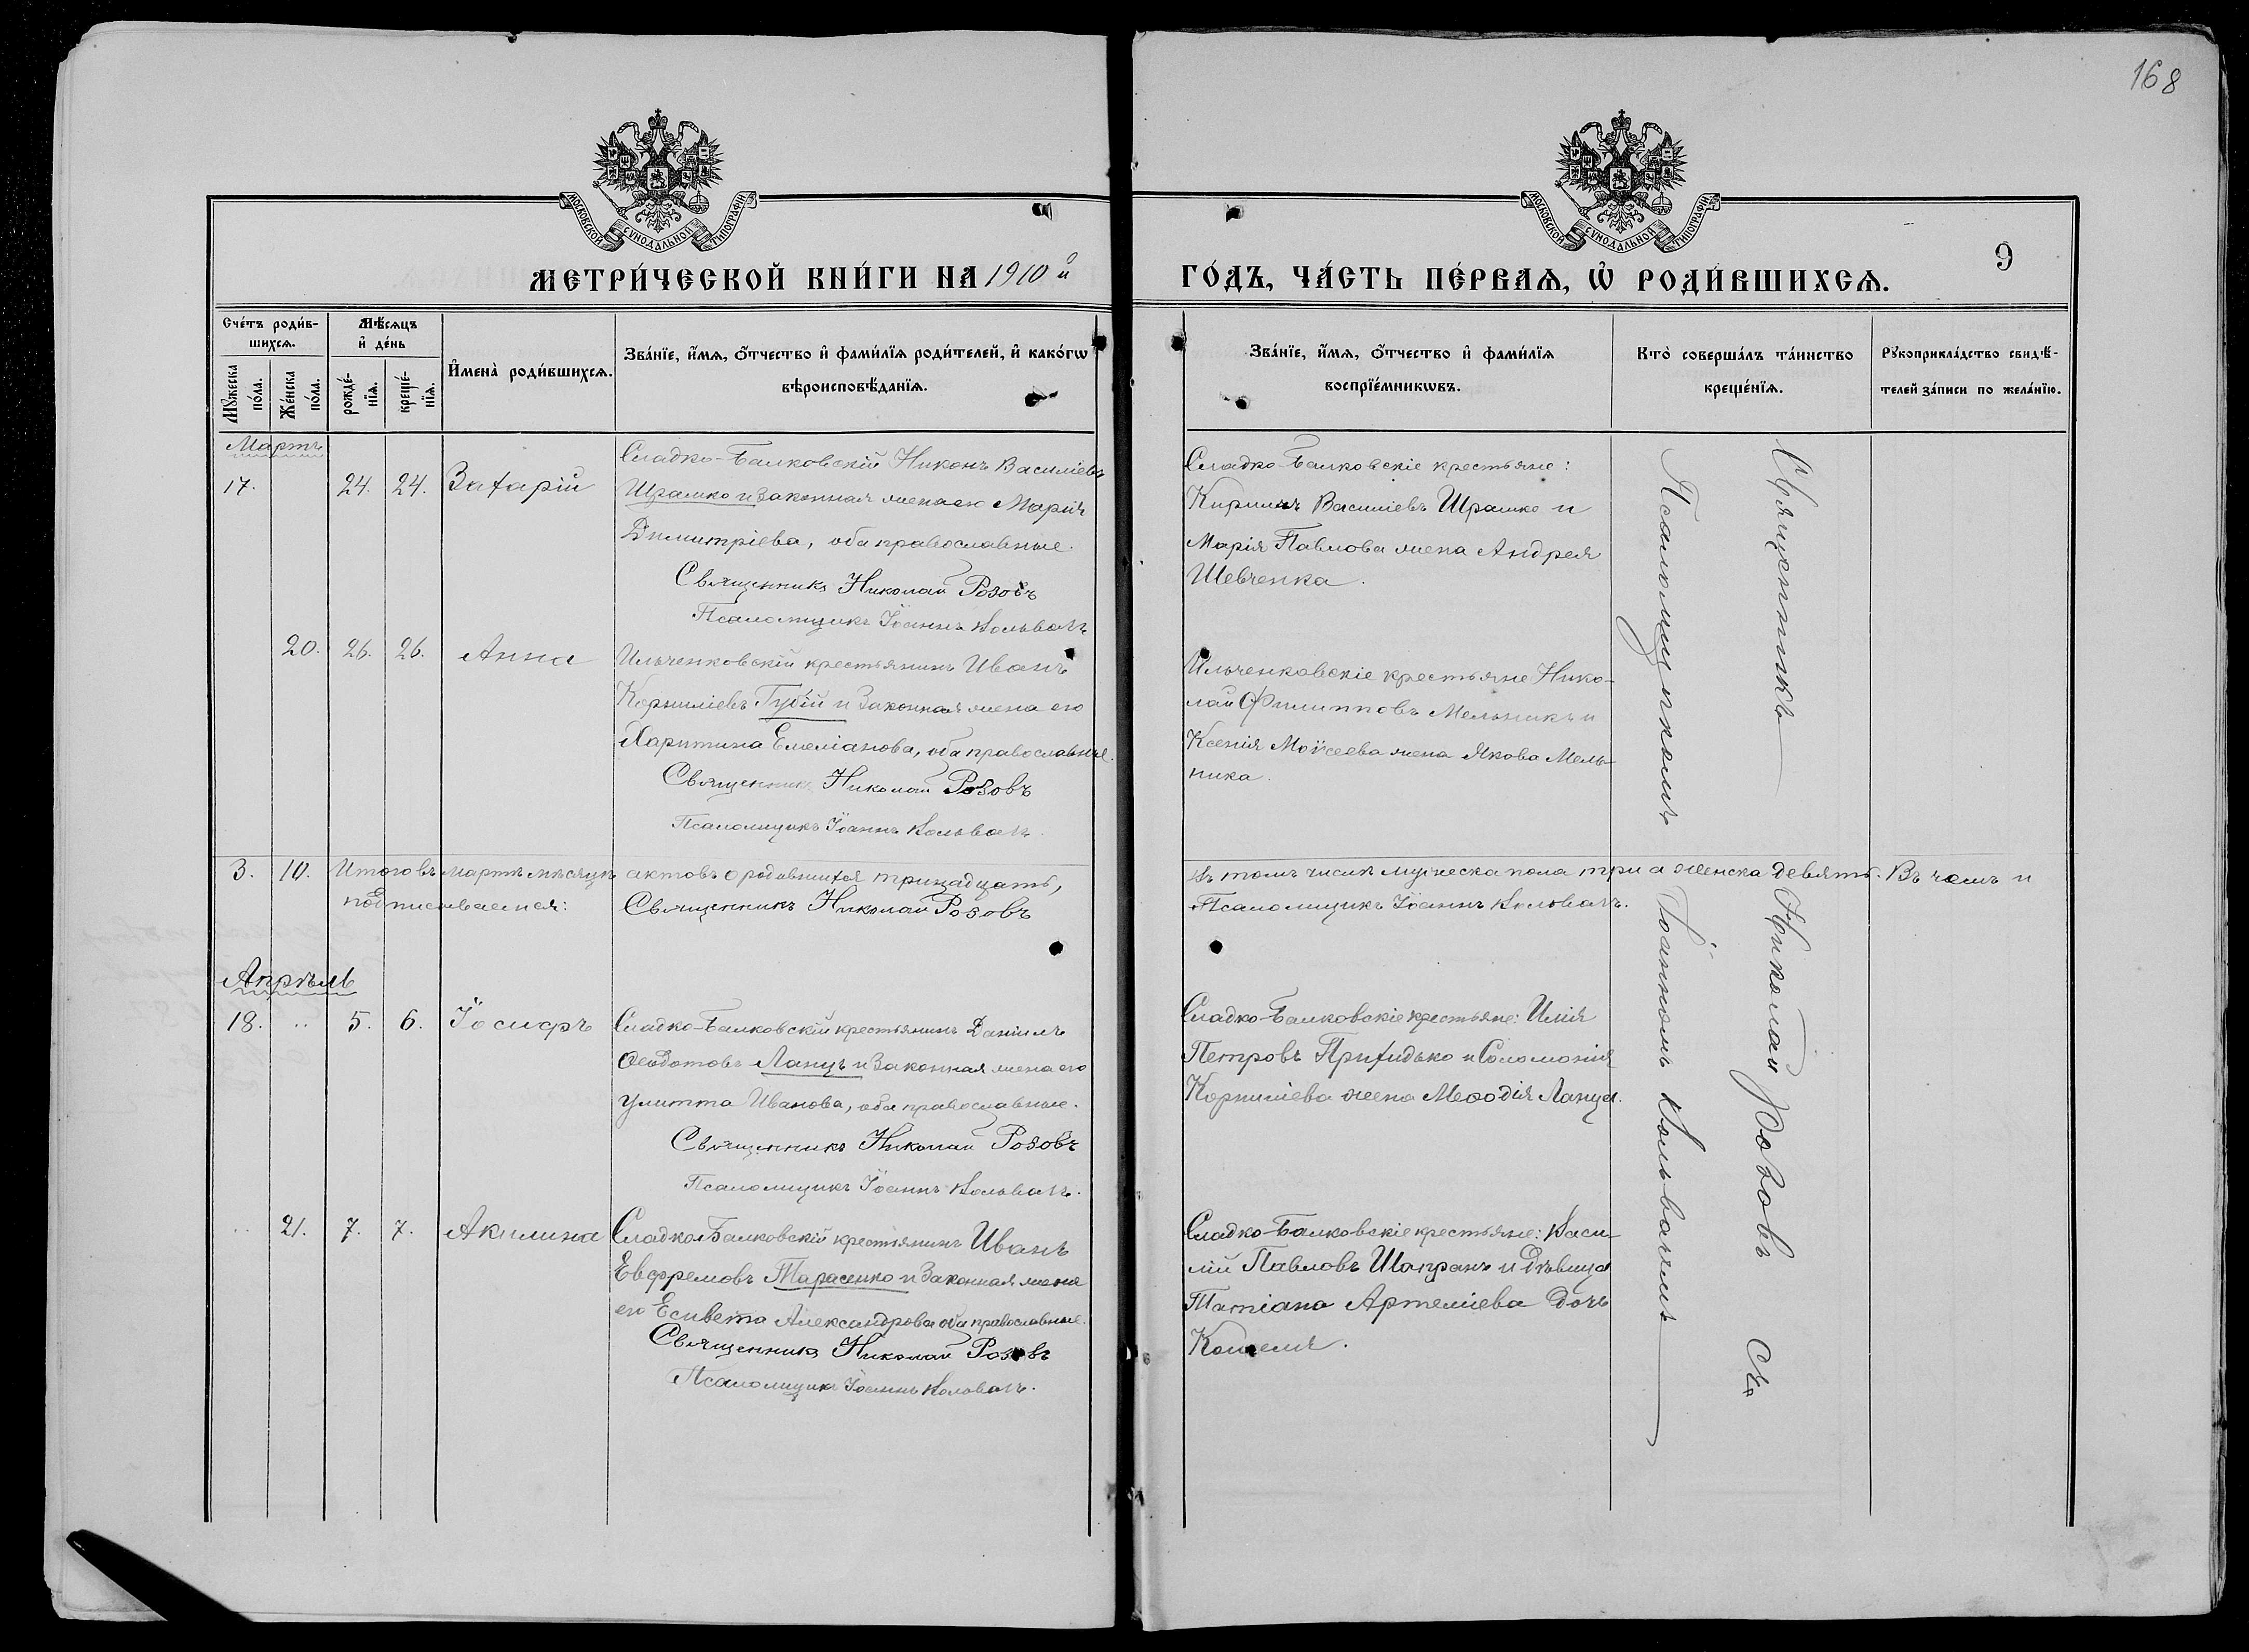 168
МОСКОВСКОЙ СУНОДАЛЬНОЙ ТИПОГРАФІИ
МОСКОВСКОЙ СУНОДАЛЬНОЙ ТИПОГРАФІИ
9
МЕТРИ́ЧЕСКОЙ КНИ́ГИ НА 1910й
ГО́ДЪ, ЧА́СТЬ ПЕ́РВАѦ, Ѽ РОДИ́ВШИХСѦ.
Сче́тъ роди́в-
шихсѧ.
Мꙋ́жеска по́ла.
Же́нска по́ла.
Мѣ́сѧцъ и҆ де́нь
рожде́-
нїѧ.
креще́-
нїѧ.
И҆мена̀ роди́вшихсѧ.
Зва́нїе, и҆́мѧ, ѻ҆́тчество и҆ фами́лїѧ роди́телей, и҆ како́гѡ
вѣроисповѣ́данїѧ.
Зва́нїе, и҆́мѧ, ѻ҆́тчество и҆ фами́лїѧ
воспрїе́мникѡвъ.
Кто̀ соверша́лъ та́инство
креще́нїѧ.
Рꙋкоприкла́дство свидѣ́-
телей за́писи по жела́нїю.
Мартъ
17. 24. 24. Захарій
Сладко-Балковскій Никонъ Василіевъ
Шрамко и законная жена его Марія
Димитріева, оба православные.
Священникъ Николай Розовъ
Псаломщикъ Іоаннъ Кольвахъ
Сладко-Балковскіе крестьяне:
Кириллъ Василіевъ Шрамко и
Марія Павлова жена Андрея
Шевченка.
20. 26. 26. Анна
Ильченковскій крестьянинъ Иванъ
Корниліевъ Губій и законная жена его
Харитина Емеліанова, оба православные.
Священникъ Николай Розовъ
Псаломщикъ Іоаннъ Кольвахъ.
Ильченковскіе крестьяне Нико-
лай Филипповъ Мельникъ и
Ксенія Моѵсеева жена Якова Мель-
ника.
3. 10. Итого въ мартѣ мѣсяцѣ актовъ о родившихся тринадцать,
въ томъ числѣ мужеска пола три а женска девять. Въ чемъ и
подписываемся:
Священникъ Николай Розовъ
Псаломщикъ Іоаннъ Кольвахъ.
Апрѣль
18. .. 5. 6. Іосифъ
Сладко-Балковскій крестьянинъ Даніилъ
Ѳеодотовъ Лануъ и законная жена его
Улитта Иванова, оба православные.
Священникъ Николай Розовъ
Псаломщикъ Іоаннъ Кольвахъ.
Сладко-Балковскіе крестьяне: Илія
Петровъ Прихидько и Соломонія
Корниліева жена Меѳодія
.. 21. 7. 7. Акилина
Сладко-Балковскій крестьянинъ Иванъ
Евфремовъ Тарасенко и законная жена
его Есивета Александрова оба православные.
Священникъ Николай Розовъ
Псаломщикъ Іоаннъ Кольвахъ.
Сладко-Балковскіе крестьяне: Васи-
лій Павловъ Шапранъ и дѣвица
Татіана Артеміева дочь
Кошеля.
Священникъ Николай Розовъ съ
Псаломщикомъ Іоанномъ Кольвахомъ